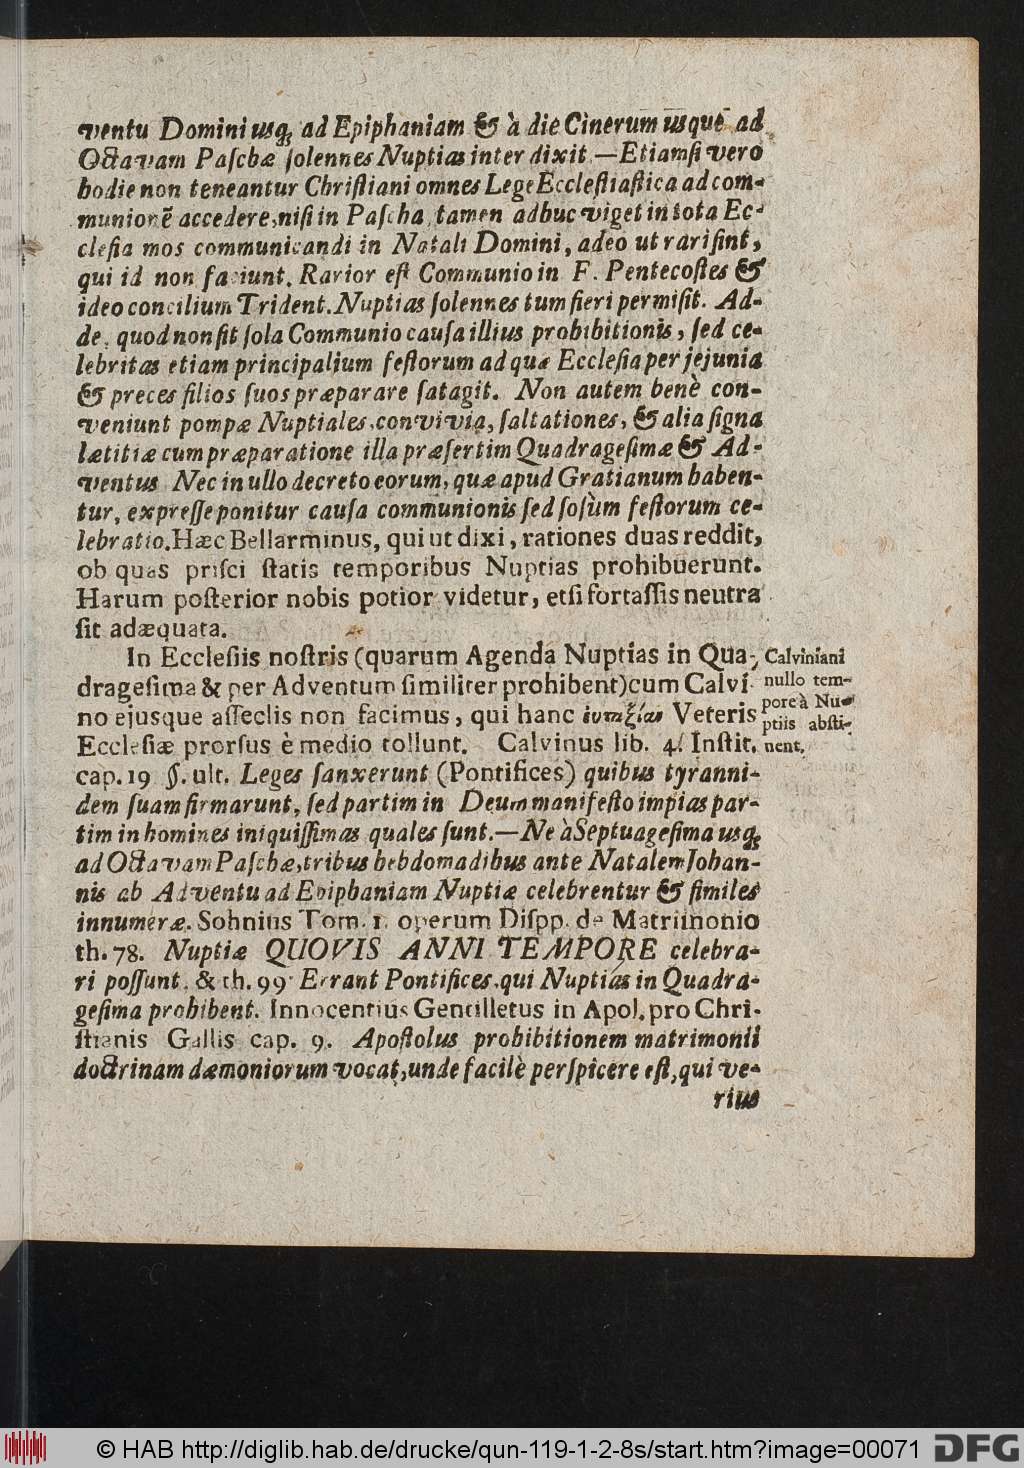 ventu Domini usq; ad Epiphaniam & à die Cinerum usque ad
Octavam Paſchæ ſolennes Nuptias inter dixit.—Etiamſi vero
hodie non teneantur Chriſtiani omnes Lege Eccleſtiaſtica ad com-
munionẽ accedere, niſi in Paſcha, tamen adhuc viget in tota Ec-
cleſia mos communicandi in Natali Domini, adeo ut rari ſint,
qui id non faciunt. Rarior eſt Communio in F. Pentecoſtes &
ideo concilium Trident. Nuptias ſolennes tum fieri permiſit. Ad-
de, quod non ſit ſola Communio cauſa illius prohibitionis, ſed ce-
lebritas etiam principalium feſtorum ad quæ Eccleſia per jejunia
& preces filios ſuos præparare ſatagit. Non autem benè con-
veniunt pompæ Nuptiales, convivia, ſaltationes, & alia ſigna
lætitiæ cum præparatione illa præſertim Quadrageſimæ & Ad-
ventus Nec in ullo decreto eorum, quæ apud Gratianum haben-
tur, expreſſe ponitur cauſa communionis ſed ſoſùm feſtorum ce-
lebratio. Hæc Bellarminus, qui ut dixi, rationes duas reddit,
ob quas priſci ſtatis temporibus Nuptias prohibuerunt.
Harum poſterior nobis potior videtur, etſi fortaſſis neutra
ſit adæquata.
In Eccleſiis noſtris (quarum Agenda Nuptias in Qua-
drageſima & per Adventum ſimiliter prohibent) cum Calvi-
no ejusque aſſeclis non facimus, qui hanc Veteris
Eccleſiæ prorſus è medio tollunt. Calvinus lib. 4. Inſtit.
cap. 19 §. ult. Leges ſanxerunt (Pontifices) quibus tyranni-
dem ſuam firmarunt, ſed partim in Deum manifeſto impias par-
tim in homines iniquiſſimas quales ſunt.—Ne à Septuageſima usq;
ad Octavam Paſchæ, tribus hebdomadibus ante Natalem Johan-
nis ab Adventu ad Epiphaniam Nuptiæ celebrentur & ſimiles
innumeræ. Sohnius Tom. 1. operum Diſpp. de Matrimonio
th. 78. Nuptiæ QUOVIS ANNI TEMPORE celebra-
ri poſſunt. & th. 99 Errant Pontifices, qui Nuptias in Quadra-
geſima prohibent. Innocentius Gentilletus in Apol. pro Chri-
ſtianis Gallis cap. 9. Apoſtolus prohibitionem matrimonii
doctrinam dæmoniorum vocat, unde facilè perſpicere eſt, qui ve-
rius
Calviniani
nullo tem-
pore à Nu-
ptiis abſti-
nent.
© HAB http://diglib.hab.de/drucke/qun-119-1-2-8s/start.htm?image=00071
DFG